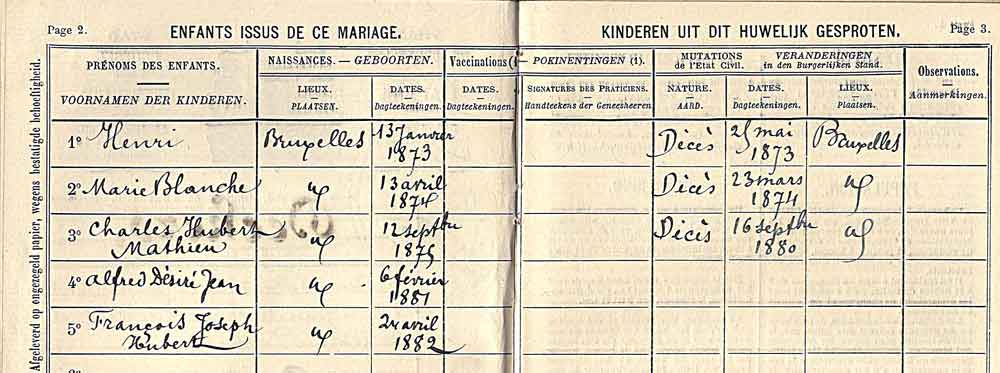 Page 2. ENFANTS ISSUS DE CE MARIAGE. KINDEREN UIT DIT HUWELIJK GESPROTEN. Page 3.
Afgeleverd op ongezegeld papier, wegens bestatigde behoeftigheid.
PRÉNOMS DES ENFANTS.
VOORNAMEN DER KINDEREN.
NAISSANCES. — GEBOORTEN.
LIEUX.
PLAATSEN.
DATES.
Dagteekeningen.
Vaccinations (1) — POKINENTINGEN (1).
DATES.
Dagteekeningen.
SIGNATURES DES PRATICIENS.
Handteekens der Geneesheeren
MUTATIONS de l'État Civil. VERANDERINGEN in den Burgerlijken Stand.
NATURE.
AARD.
DATES.
Dagteekeningen.
LIEUX.
Plaatsen.
Observations.
Aanmerkingen.
1° Henri Bruxelles 13 Janvier 1873 Décès 25 mai 1873 Bruxelles
2° Marie Blanche id 13 avril 1874 Décès 23 mars 1874 id
3° Charles Hubert Mathieu id 12 septbre 1875 Décès 16 septbre 1880 id
4° Alfred Désiré Jean id 6 février 1881
5° François Joseph Hubert id 24 avril 1882